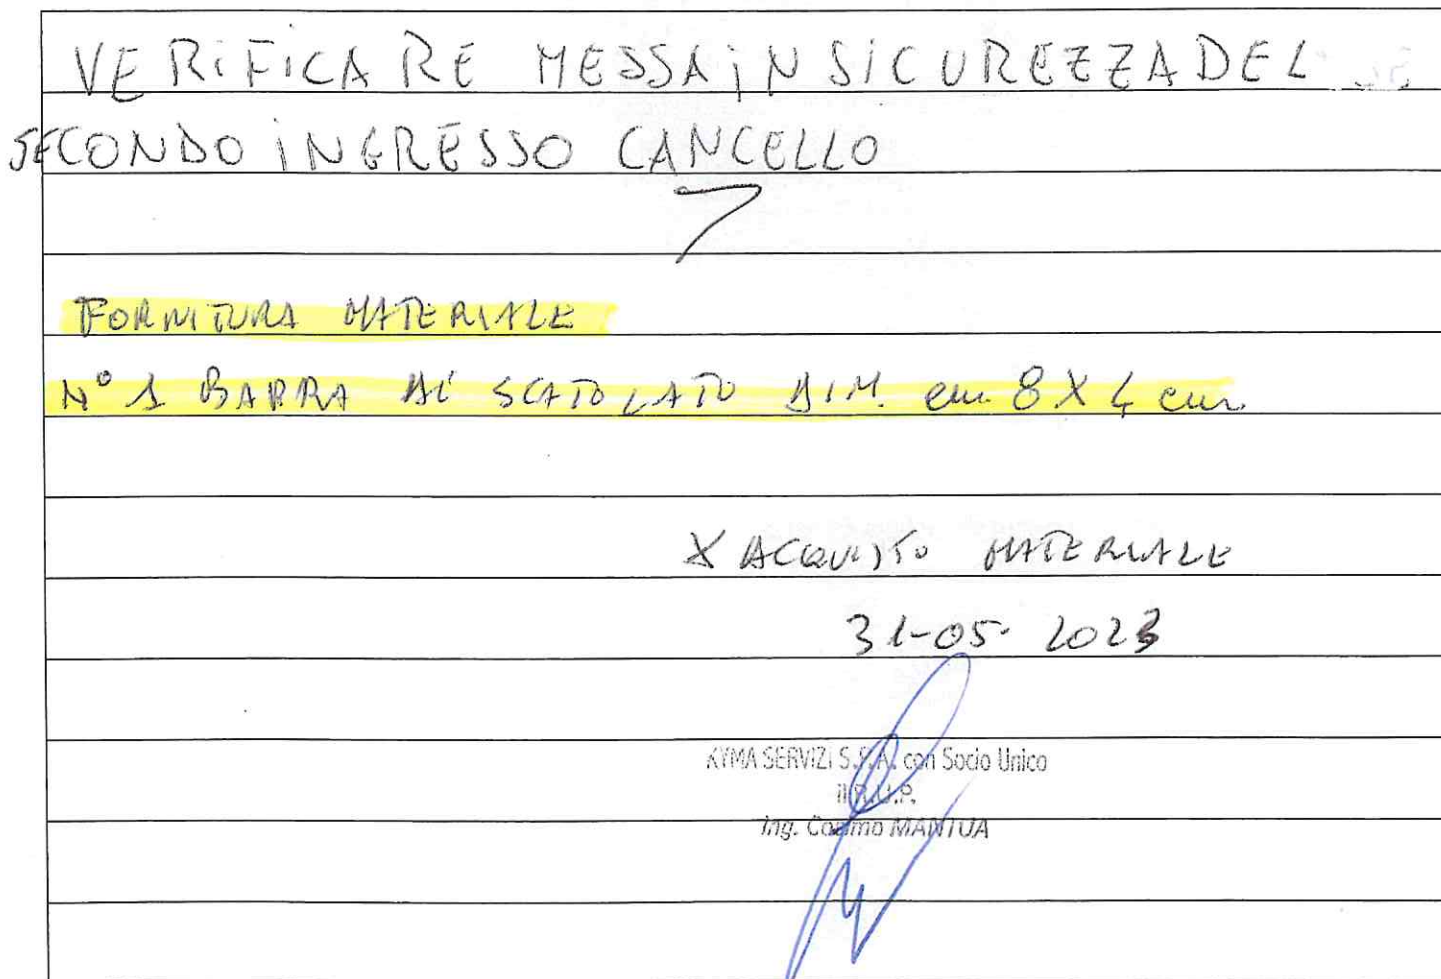 VERIFICARE MESSA IN SICUREZZA DEL
SECONDO INGRESSO CANCELLO
FORNITURA MATERIALE
N° 1 BARRA DI SCATOLATO DIM. cm 8 X 4 cm
X ACQUISTO MATERIALE
31-05-2023
KYMA SERVIZI S.P.A. con Socio Unico
il R.U.P.
Ing. Cosimo MANTUA